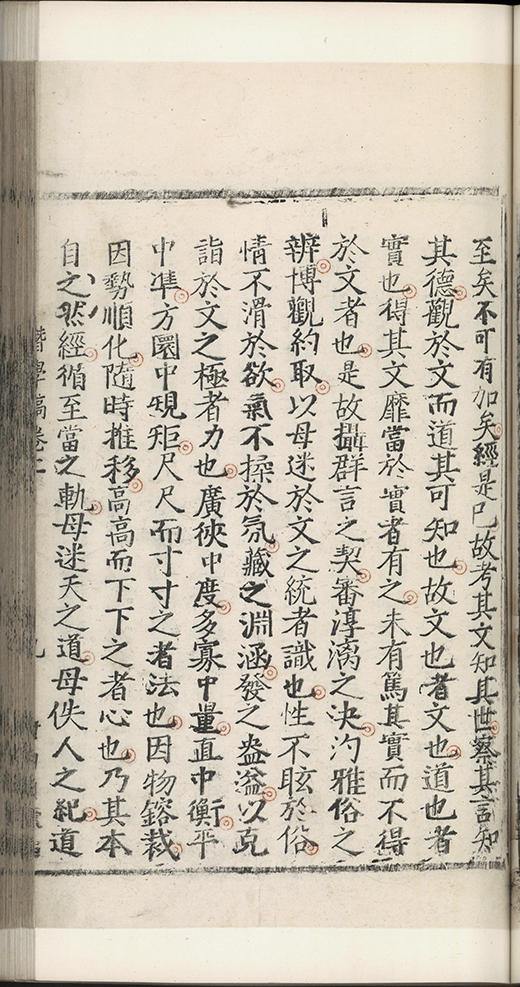 至矣不可有加矣經是已故考其文知其世察其言知
其德觀於文而道其可知也故文也者文也道也者
實也得其文靡當於實者有之未有篤其實而不得
於文者也是故攝群言之契審淳漓之決汋雅俗之
辨博觀約取以毋迷於文之統者識也性不眩於俗
情不滑於欲氣不操於氛藏之淵涵發之盎溢以克
詣於文之極者力也廣狹中度多寡中量直中衡平
中準方圜中規矩尺尺而寸寸之者法也因物鎔裁
因勢順化隨時推移高高而下下之者心也乃其本
自之然經循至當之軌毋迷天之道毋佚人之紀道